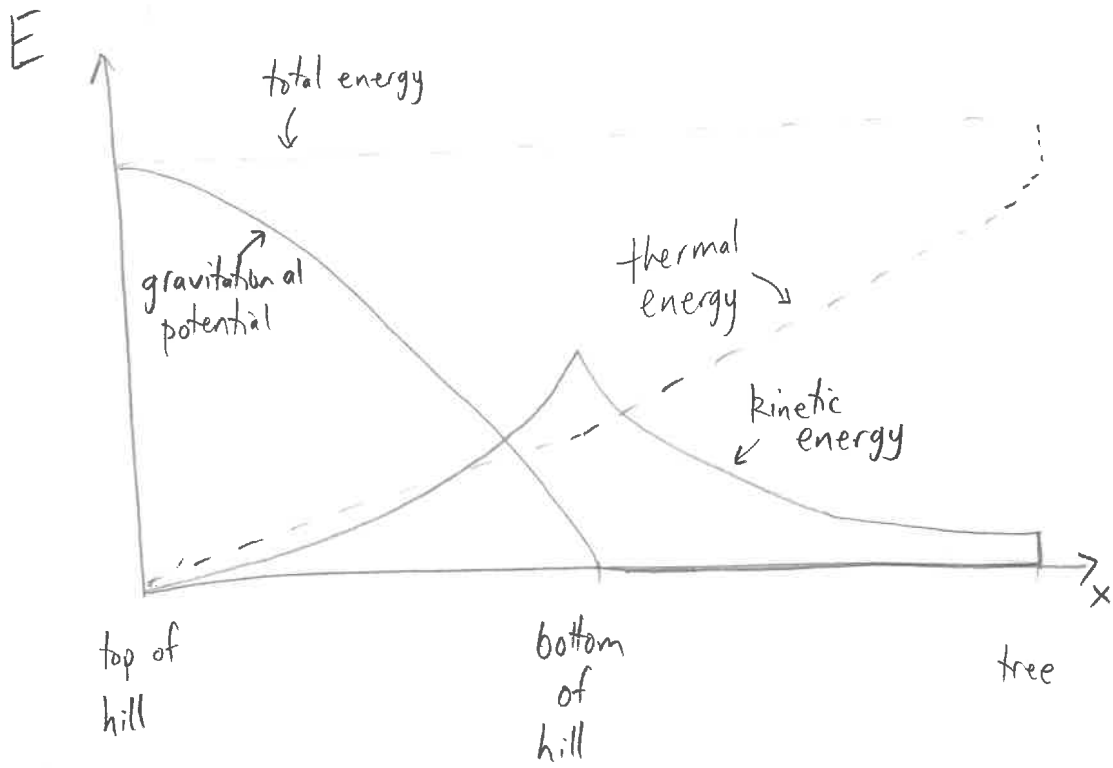 E
total energy
gravitational
potential
thermal
energy
kinetic
energy
x
top of
hill
bottom
of
hill
tree